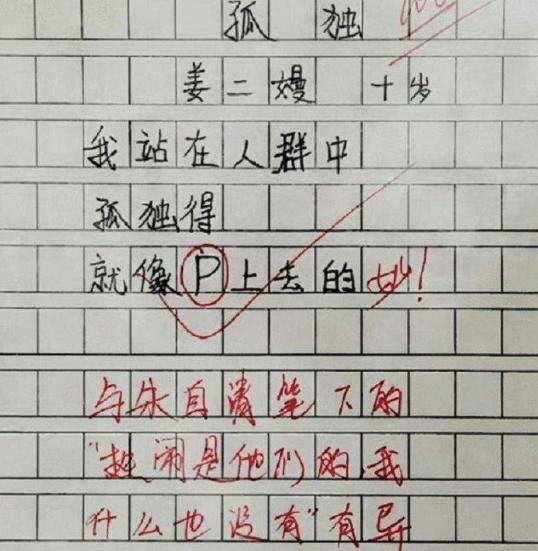 孤独
姜二嫚 十岁
我站在人群中
孤独得
就像P上去的 妙!
与朱自清笔下的
"热闹是他们的,我
什么也没有"有异